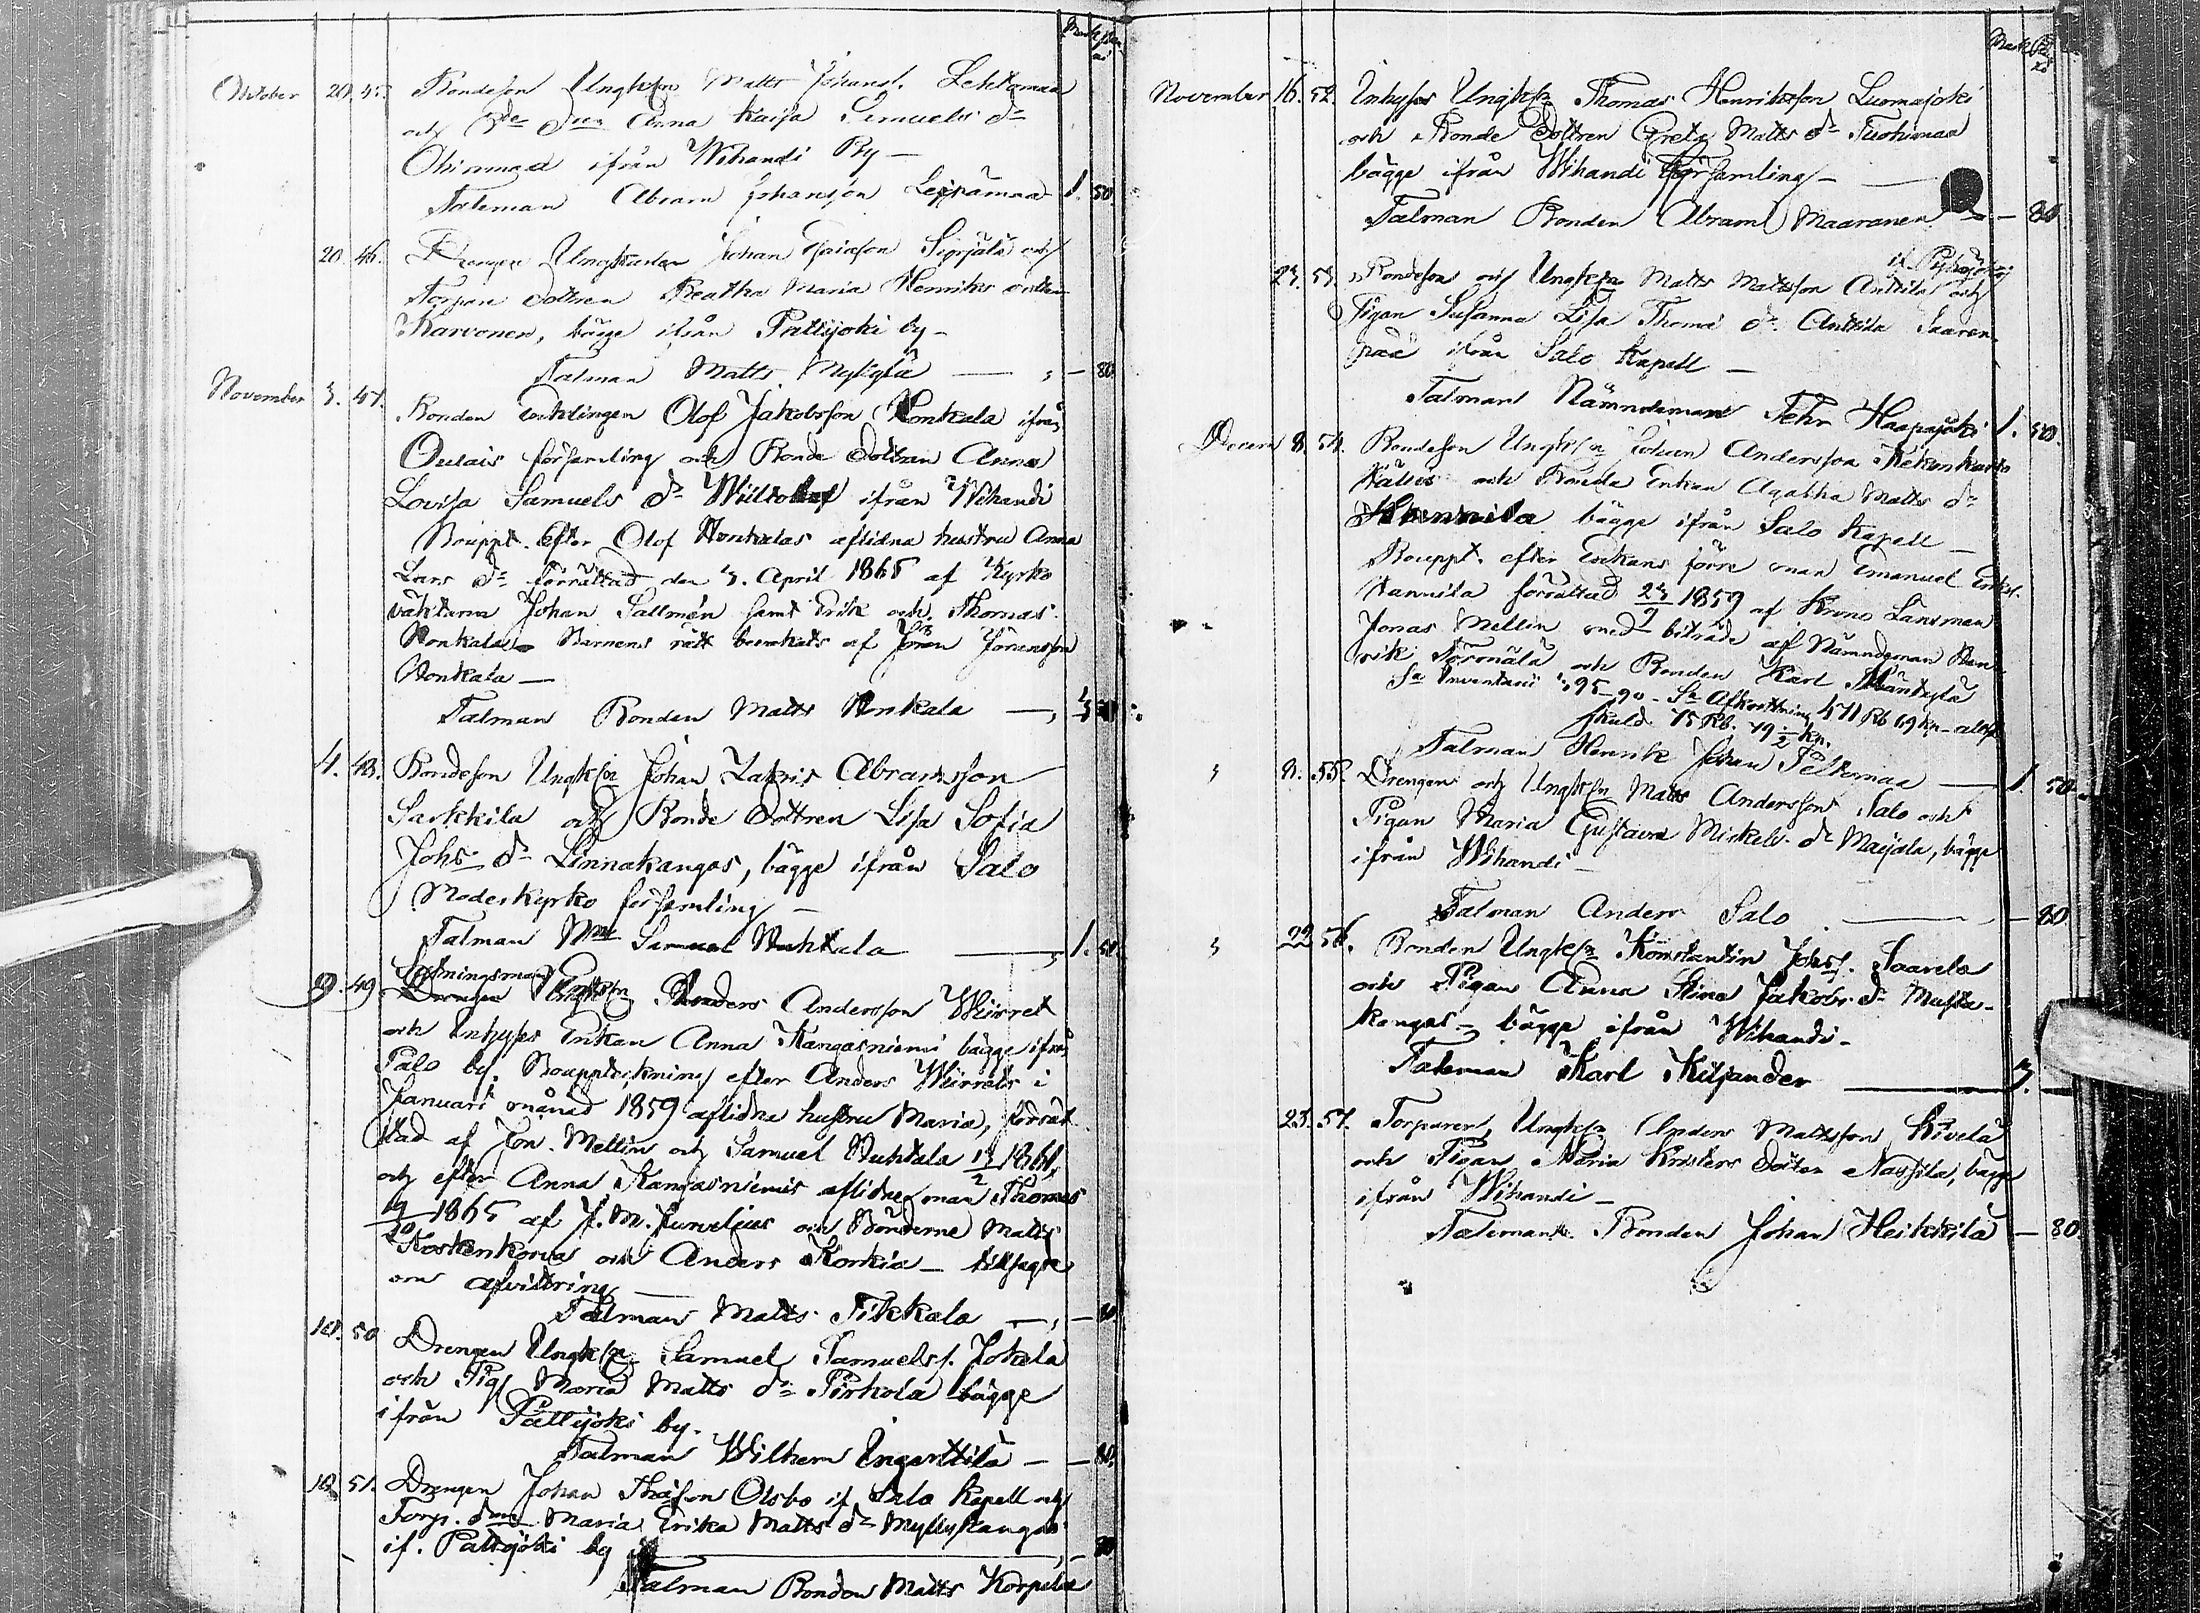 Mark
October 20. 45. Bondeson Ungk:n Matts Johans f. Lehtomaa
och Bde Dtr Anna Kaisa Simuels d:r
Ohinmaa ifrån Wihandi By —
Taleman Abram Johansson Leppämaa 1. 50
20. 46. Drengen Ungkarlen Johan Sipilä och
Torpare Dottren Beatha Maria Henriks dotter
Karvonen, bägge ifrån Pattijoki by —
Talman Matts Myllylä — " — 80
November 3. 47. Bonden Enklingen Olof Jakobsson Honkala ifrån
Oulais församling och Bonde Dottren Anna
Lovisa Samuels d:r ifrån Wihandi
Bouppt. efter Olof Honkalas aflidna hustru Anna
Lars d:r förrättad den 3. April 1865 af Kyrko
väktarne Johan Sallmén samt Erik och Thomas
Honkala — Barnens rätt bevakats af Jöran Jöransson
Honkala —
Talman Bonden Matts Honkala —,
4. 48. Bondeson Ungk:n Johan Zakris Abramsson
Sarkkila och Bonde Dottren Lisa Sofia
Johs d:r Linnakangas, bägge ifrån Salo
Moderkyrko församling —
Talman Samuel Huhtala — 1. 50.
9. 49. Drengen Anders Andersson Wiirret
och Inhyses Enkan Anna Kangasniemi bägge ifrån
Palo by. Bouppteckning efter Anders Wiirrets i
Januari månad 1859 aflidna hustru Maria, förrät
tad af Jon. Mellin och Samuel Huhtala 1861,
och efter Anna Kangasniemis aflidne man Thomas
19/20 1865 af J. M. Junelius och Bönderne Matts
Koskenkorva och Anders Korkia — tillsagde
om afvittring —
Talman Matts Tikkala —, — 80
10. 50 Drengen Ungk:n Samuel Samuels f. Jokela
och Pig. Maria Matts d:r Pirkola bägge
ifrån Pattijoki by.
Talman Wilhem Ingerttilä — — 80.
10. 51. Drengen Johan Thósson Olsbo if Salo Kapell och
Torp. dtr Maria Erika Matts d:r Myllykangas
if. Pattijoki by —, — 80
Talman Bonden Matts Korpela
Mark
November 16. 52. Inhyses Ungk:n Thomas Henriksson Luomajoki
och Bonde Dottren Greta Matts d:r Tuohimaa
bägge ifrån Wihandi Församling —
Talman Bonden Abram Maaranen — — 80
if Pyhäjoki
23. 53. Bondeson och Ungk:n Matts Mattsson Anttila och
Pigan Susanna Lisa Thoms d:r Anttila Saaren
pää ifrån Salo Kapell —
Talman Nämndeman Pehr Haapajoki 1. 50.
Decem 8. 54. Bondeson Ungk:n Johan Andersson
och Bonde Enkan Agatha Matts d:r
Hannila bägge ifrån Salo Kapell —
Bouppt. efter Enkans förre man Emanuel
Hannila förrättad 1859 af Krono Länsman
Jonas Mellin med biträde af Nämndeman Hen
rik Törmälä och Bonden Karl Mäntylä
Sa Inventarii 95-90 — Sa Afkortning 471 Rb 69 kp —
skuld 75 Rb. 79 1/2 kp.
Talman Henrik Johan Peltomaa — 1. 50
" 8. 55. Drengen och Ungk:n Matts Andersson Salo och
Pigan Maria Gustava Mickels d:r Maijala, bägge
ifrån Wihandi —
Talman Anders Salo — — 80
" 22. 56. Bonden Ungk:n Konstantin Johs f. Saarela
och Pigan Anna Stina Jakobs d:r Musta-
kangas — bägge ifrån Wihandi —
Taleman Karl Kiljander — 3. —
23. 57. Torparen, Ungk:n Anders Mattsson Kivelä
och Pigan Maria Kristers Dotter Nassila, bägge
ifrån Wihandi —
Taleman Bonden Johan Heikkilä — 80